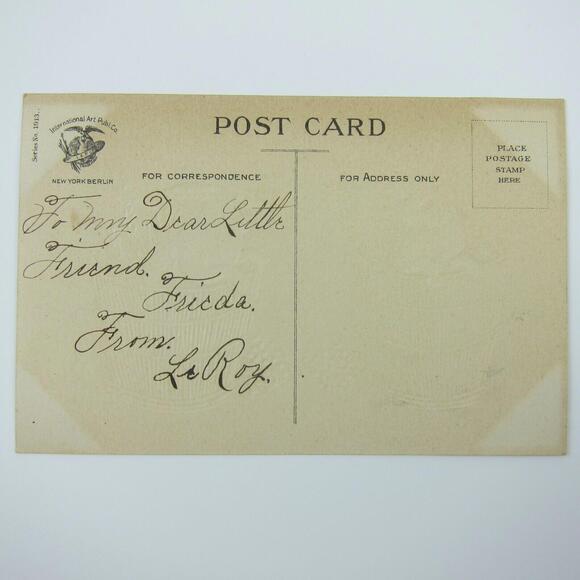 Series No. 1913.
International Art Publ. Co.
NEW YORK BERLIN
POST CARD
FOR CORRESPONDENCE
FOR ADDRESS ONLY
PLACE
POSTAGE
STAMP
HERE
To my Dear Little
Friend.
Frieda.
From.
Le Roy.